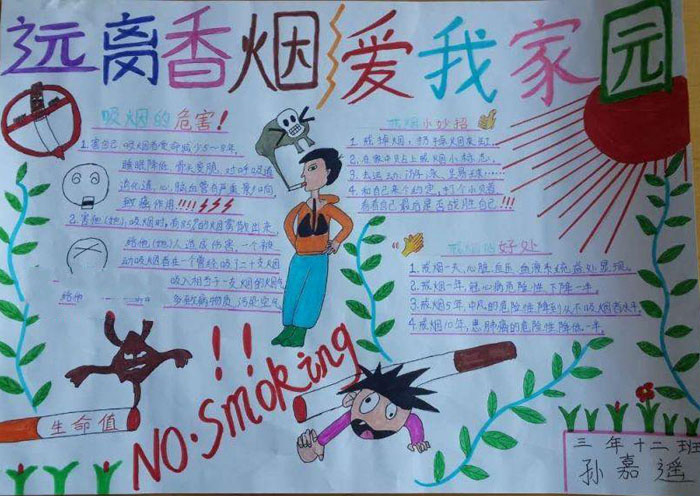 远离香烟爱我家园
吸烟的危害!
1.害己,吸烟者寿命减少5~8年
睡眠降低,骨头变脆,对呼吸道
消化道,心,脑血管有严重
致癌作用!!!
2.害他(她),吸烟时,有85%的烟雾散出来
给他(她)人造成伤害,一个被
动吸烟者在一个曾经吸二十支烟
吸入相当于一支烟的烟气
给他
多致病物质,污染空气
戒烟小妙招
1.戒掉烟,扔掉烟灰缸。
2.在家中贴上戒烟小标志。
3.去运动,游泳、足球……
4.和自己来个约定,打个小贝看
看看自己最后是否战胜自己!!!
戒烟的好处
1.戒烟一天,心脏血压、血液系统益处显现。
2.戒烟一年,冠心病危险性下降一半。
3.戒烟5年,中风的危险性降到从不吸烟者水平。
4.戒烟10年,患肺癌的危险性降低一半。
生命值
!!
NO.Smoking
三年十二班
孙嘉遥